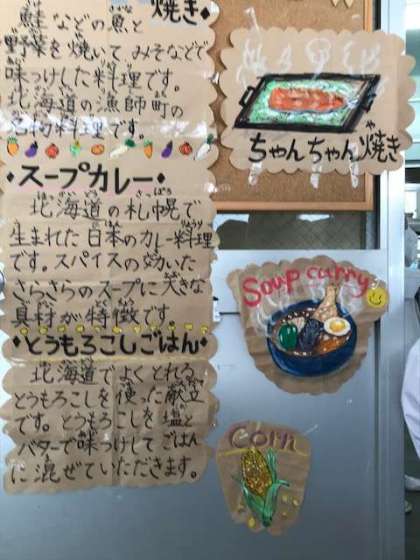 焼き◆
鮭などの魚と
野菜を焼いて みそなどで
味つけした料理です。
北海道の漁師町の
名物料理です。
◆スープカレー◆
北海道の札幌で
生まれた日本のカレー料理
です。スパイスの効いた
さらさらのスープに大きな
具材が特徴です。
◆とうもろこしごはん◆
北海道でよくとれる
とうもろこしを使った献立
です。とうもろこしを塩と
バターで味つけしてごはん
に混ぜていただきます。
ちゃんちゃん焼き
Soup curry
Corn